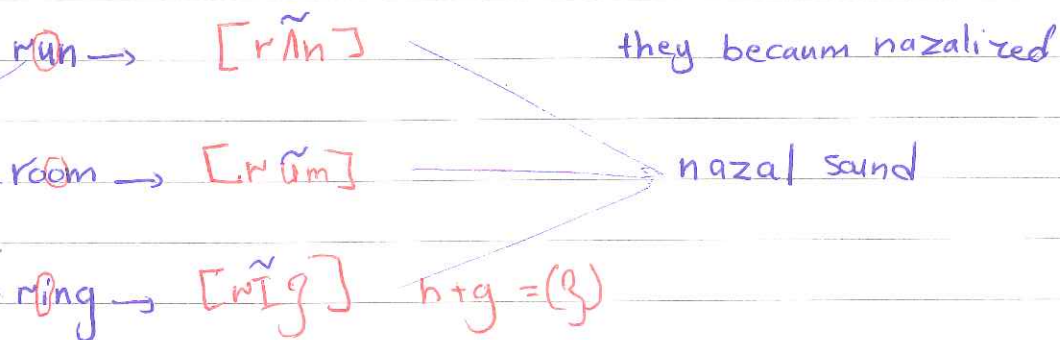 run → [rʌ̃n] they becaum nazalized
room → [rũm] nazal saund
ring → [rɪ̃ŋ] n+g = (ŋ)